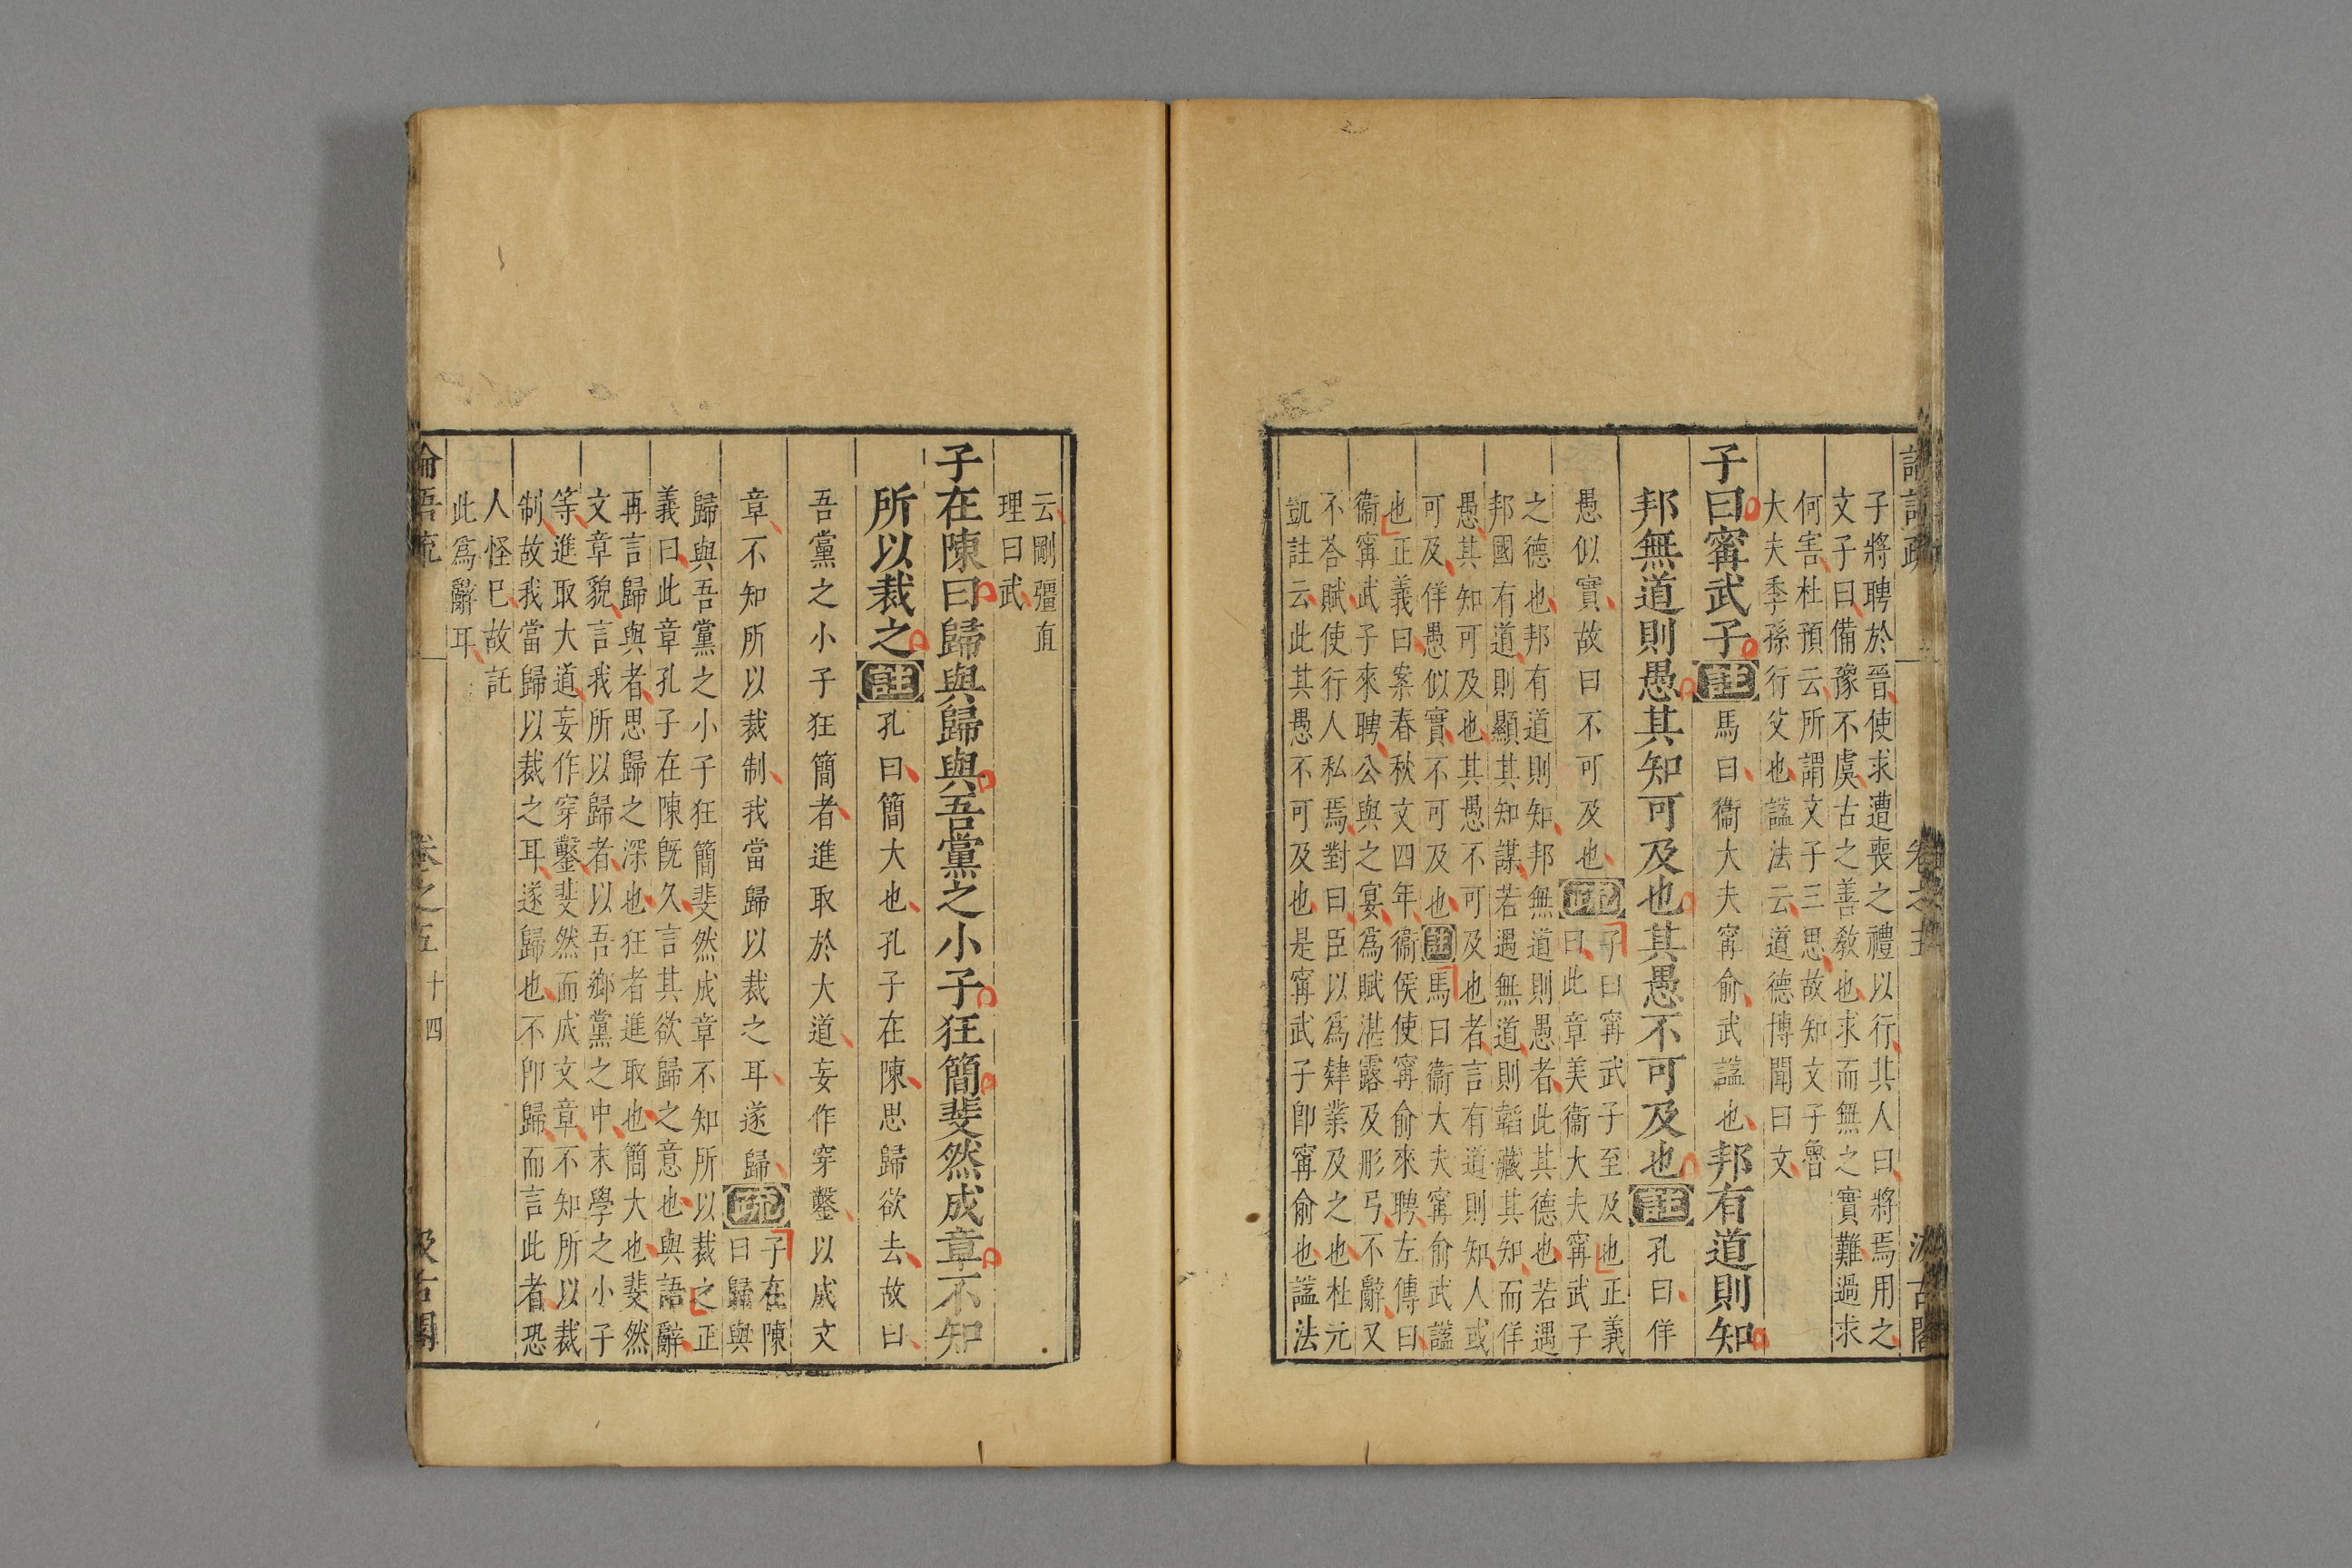 語疏 卷之五 汲古閣
子將聘於晉使求遭喪之禮以行其人曰將焉用之
文子曰備豫不虞古之善教也求而無之實難過求
何害杜預云所謂文子三思故知文子魯
大夫季孫行父也諡法云道德博聞曰文
子曰甯武子註馬曰衞大夫甯俞武諡也邦有道則知
邦無道則愚其知可及也其愚不可及也註孔曰佯
愚似實故曰不可及也疏子曰甯武子至及也正義
曰此章美衞大夫甯武子
之德也邦有道則知邦無道則愚者此其德也若遇
邦國有道則顯其知謀若遇無道則韜藏其知而佯
愚其知可及也其愚不可及也者言有道則知人或
可及佯愚似實不可及也註馬曰衞大夫甯俞武諡
也正義曰案春秋文四年衞侯使甯俞來聘左傳曰
衞甯武子來聘公與之宴為賦湛露及彤弓不辭又
不荅賦使行人私焉對曰臣以為肄業及之也杜元
凱註云此其愚不可及也是甯武子即甯俞也諡法
云剛彊直
理曰武
子在陳曰歸與歸與吾黨之小子狂簡斐然成章不知
所以裁之註孔曰簡大也孔子在陳思歸欲去故曰
吾黨之小子狂簡者進取於大道妄作穿鑿以成文
章不知所以裁制我當歸以裁之耳遂歸疏子在陳
曰歸與
歸與吾黨之小子狂簡斐然成章不知所以裁之正
義曰此章孔子在陳既久言其欲歸之意也與語辭
再言歸與者思歸之深也狂者進取也簡大也斐然
文章貌言我所以歸者以吾鄉黨之中末學之小子
等進取大道妄作穿鑿斐然而成文章不知所以裁
制故我當歸以裁之耳遂歸也不即歸而言此者恐
人怪巳故託
此為辭耳
論語疏 卷之五 十四 汲古閣